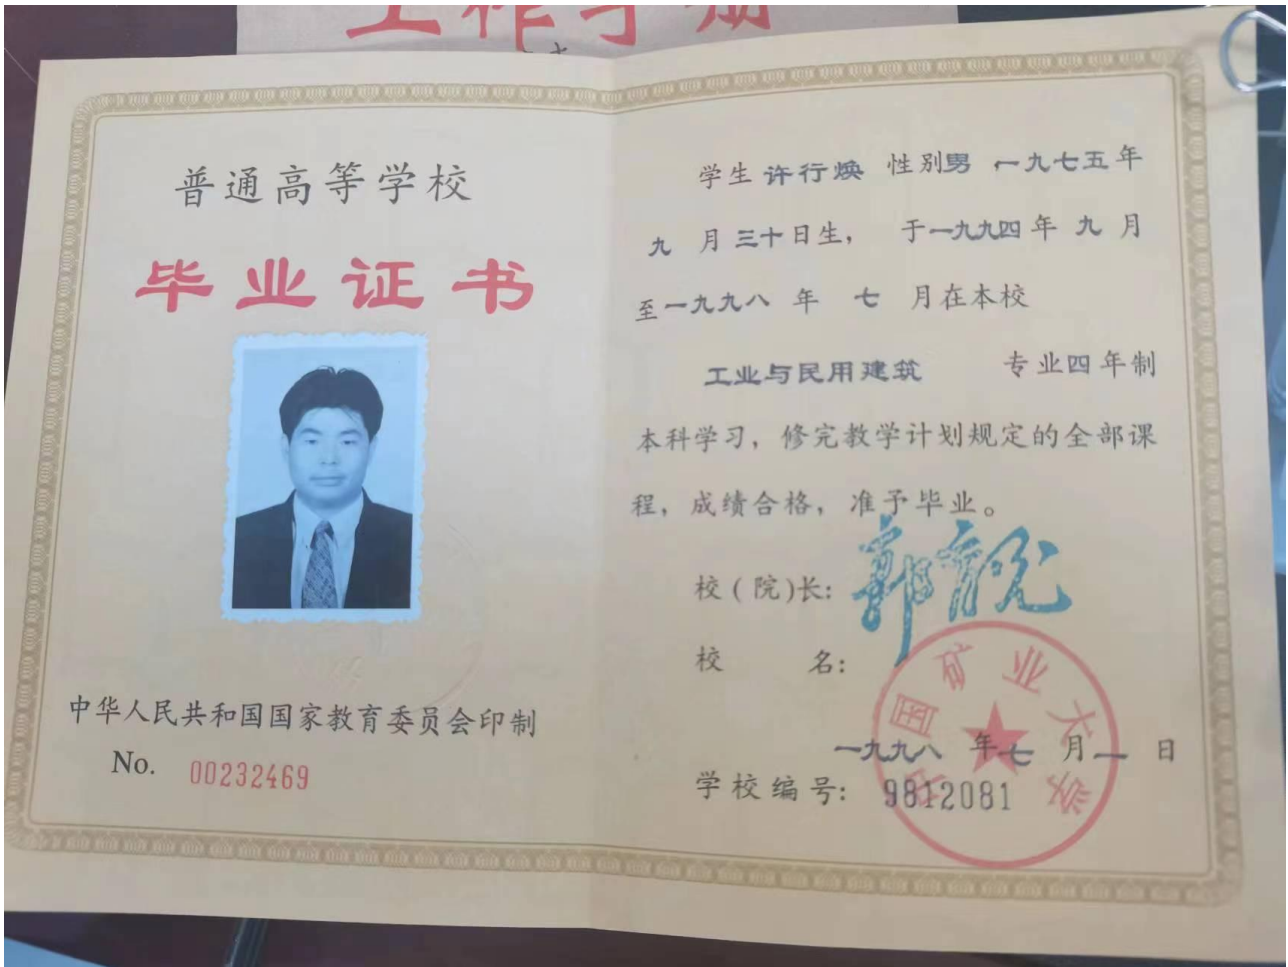 工作手册
普通高等学校
毕业证书
中华人民共和国国家教育委员会印制
No. 00232469
学生 许行焕 性别男 一九七五年
九 月三十日生, 于一九九四年 九 月
至一九九八 年 七 月在本校
工业与民用建筑 专业四年制
本科学习,修完教学计划规定的全部课
程,成绩合格,准予毕业。
校(院)长:
校 名:
中国矿业大学
一九九八 年七 月一 日
学校编号: 9812081